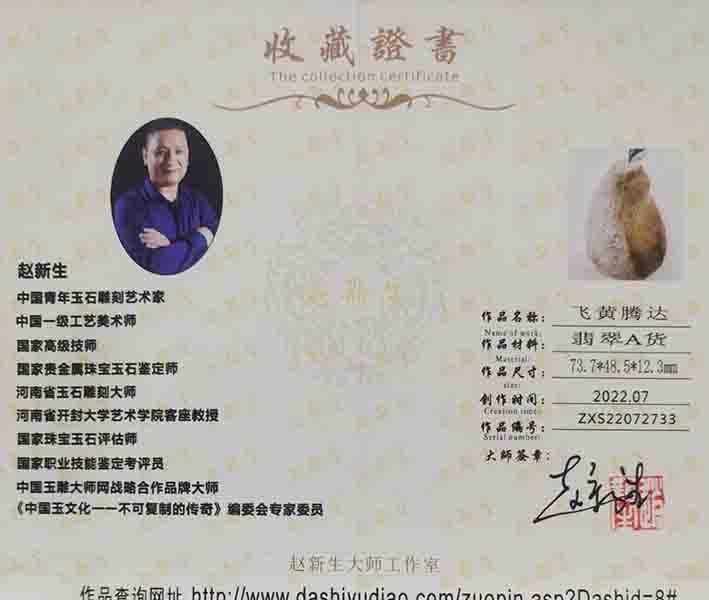 收藏證書
The collection certificate
赵新生
中国青年玉石雕刻艺术家
中国一级工艺美术师
国家高级技师
国家贵金属珠宝玉石鉴定师
河南省玉石雕刻大师
河南省开封大学艺术学院客座教授
国家珠宝玉石评估师
国家职业技能鉴定考评员
中国玉雕大师网战略合作品牌大师
《中国玉文化一一不可复制的传奇》编委会专家委员
赵新生
作品名称：飞黄腾达
Name of work:
作品材料：翡翠A货
Material:
作品尺寸：73.7*48.5*12.3mm
size:
创作时间：2022.07
Creation time:
作品编号：ZXS22072733
Serial number:
大师签章：
赵新生
赵新生大师工作室
作品查询网址 http://www.dashiyudiao.com/zuopin.asp?Dashid=8#